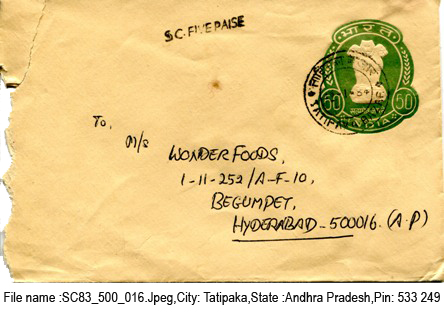 S.C. FIVE PAISE
भारत
50 50
INDIA
TATIPAKA
To,
M/s
WONDER FOODS,
1-11-252/A-F-10,
BEGUMPET,
HYDERABAD-500016. (A.P)
File name :SC83_500_016.Jpeg,City: Tatipaka,State :Andhra Pradesh,Pin: 533 249